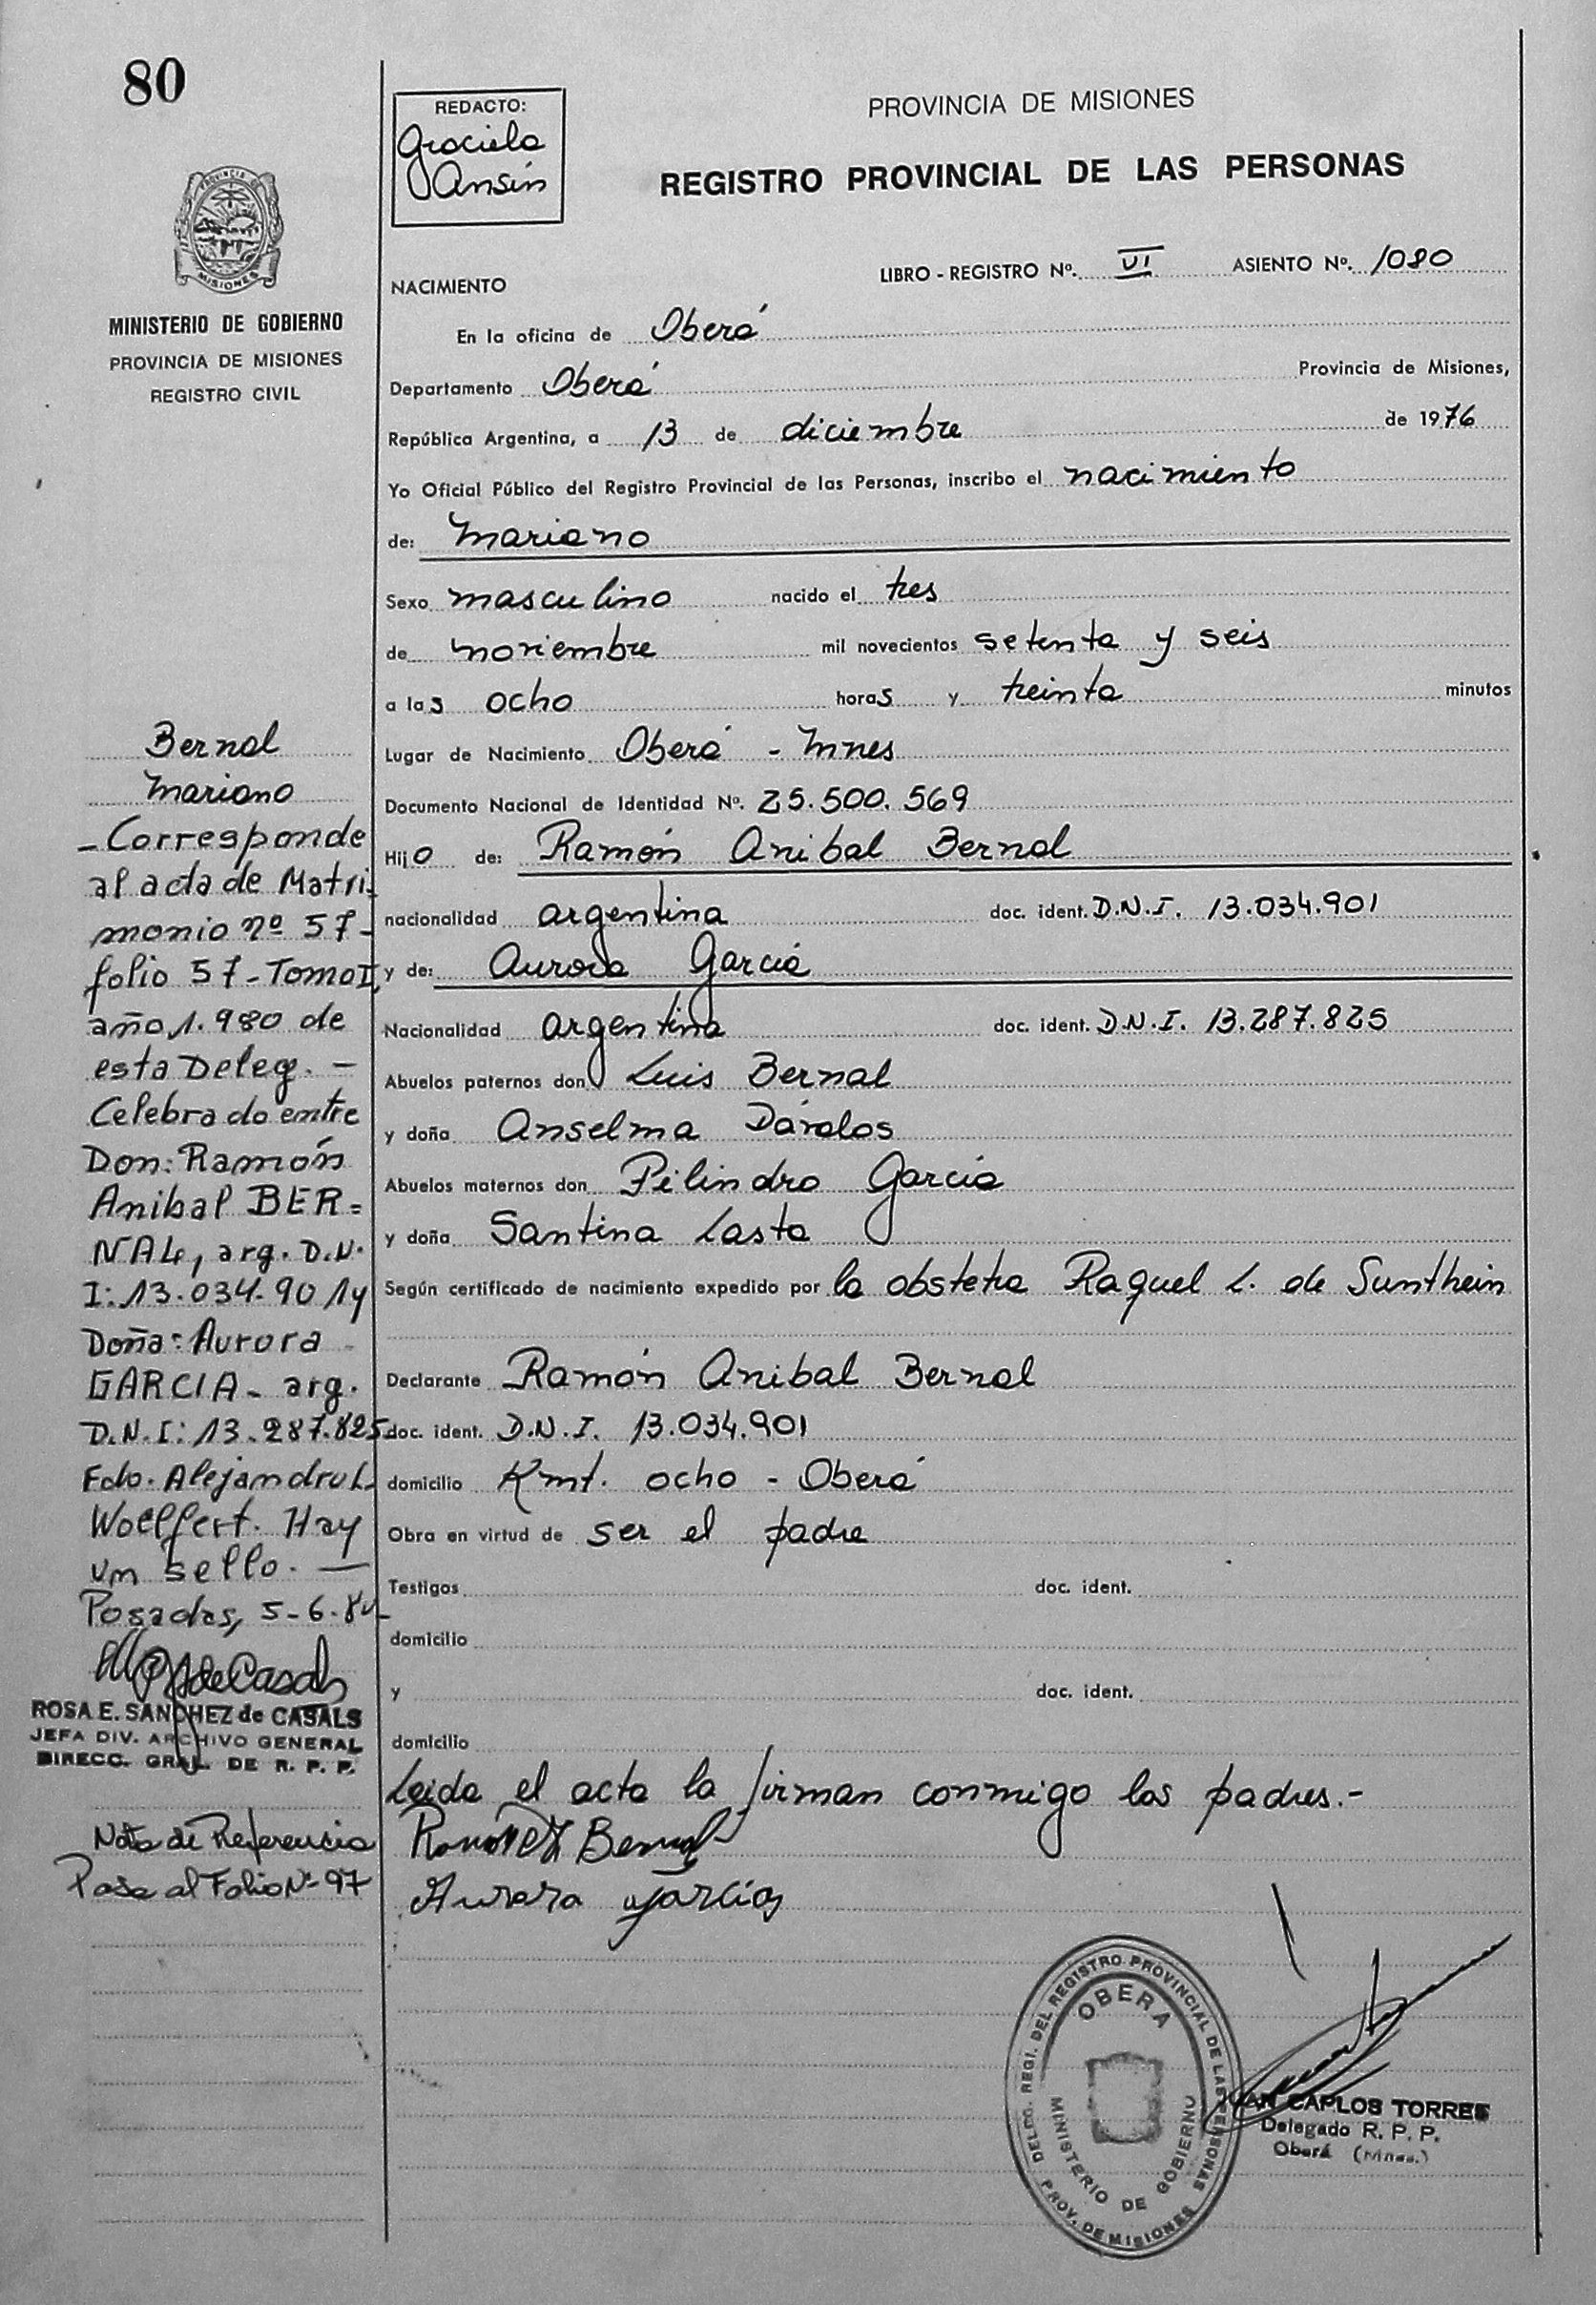 80
REDACTO:
Graciela
Ansin
PROVINCIA DE MISIONES
REGISTRO PROVINCIAL DE LAS PERSONAS
PROVINCIA DE
MISIONES
MINISTERIO DE GOBIERNO
PROVINCIA DE MISIONES
REGISTRO CIVIL
LIBRO - REGISTRO Nº. VI ASIENTO Nº. 1080
NACIMIENTO
En la oficina de Oberá
Departamento Oberá Provincia de Misiones,
República Argentina, a 13 de diciembre de 1976
Yo Oficial Público del Registro Provincial de las Personas, inscribo el nacimiento
de: Mariano
Sexo masculino nacido el tres
de noviembre mil novecientos setenta y seis
a las ocho horas y treinta minutos
Lugar de Nacimiento Oberá - Mnes
Documento Nacional de Identidad Nº. 25.500.569
Hijo de: Ramón Anibal Bernal
nacionalidad argentina doc. ident. D.N.I. 13.034.901
y de: Aurora García
Nacionalidad argentina doc. ident. D.N.I. 13.287.825
Abuelos paternos don Luis Bernal
y doña Anselma Dávalos
Abuelos maternos don Pilindro García
y doña Santina Lasta
Según certificado de nacimiento expedido por la obstetra Raquel L. de Sunthein
Declarante Ramón Anibal Bernal
doc. ident. D.N.I. 13.034.901
domicilio Kmt. ocho - Oberá
Obra en virtud de ser el padre
Testigos doc. ident.
domicilio
y doc. ident.
domicilio
Leida el acta la firman conmigo los padres.-
Ramón A Bernal
Aurora García
Bernal
Mariano
- Corresponde
al acta de Matri-
monio nº 57-
folio 57-Tomo I,
año 1.980 de
esta Deleg. -
Celebrado entre
Don: Ramón
Anibal BER=
NAL, arg. D.N.
I: 13.034.901 y
Doña: Aurora
GARCIA - arg.
D.N.I: 13.287.825
Fdo. Alejandro L.
Woelffert. Hay
un sello. -
Posadas, 5-6-84-
de Casals
ROSA E. SANCHEZ de CASALS
JEFA DIV. ARCHIVO GENERAL
DIRECC. GRAL. DE R. P. P.
Nota de Referencia
Pasa al Folio Nº 97
DELEG. REGI. DEL REGISTRO PROVINCIAL DE LAS PERSONAS
OBERA
MINISTERIO DE GOBIERNO
PROV. DE MISIONES
JUAN CARLOS TORRES
Delegado R. P. P.
Oberá (Mnes.)